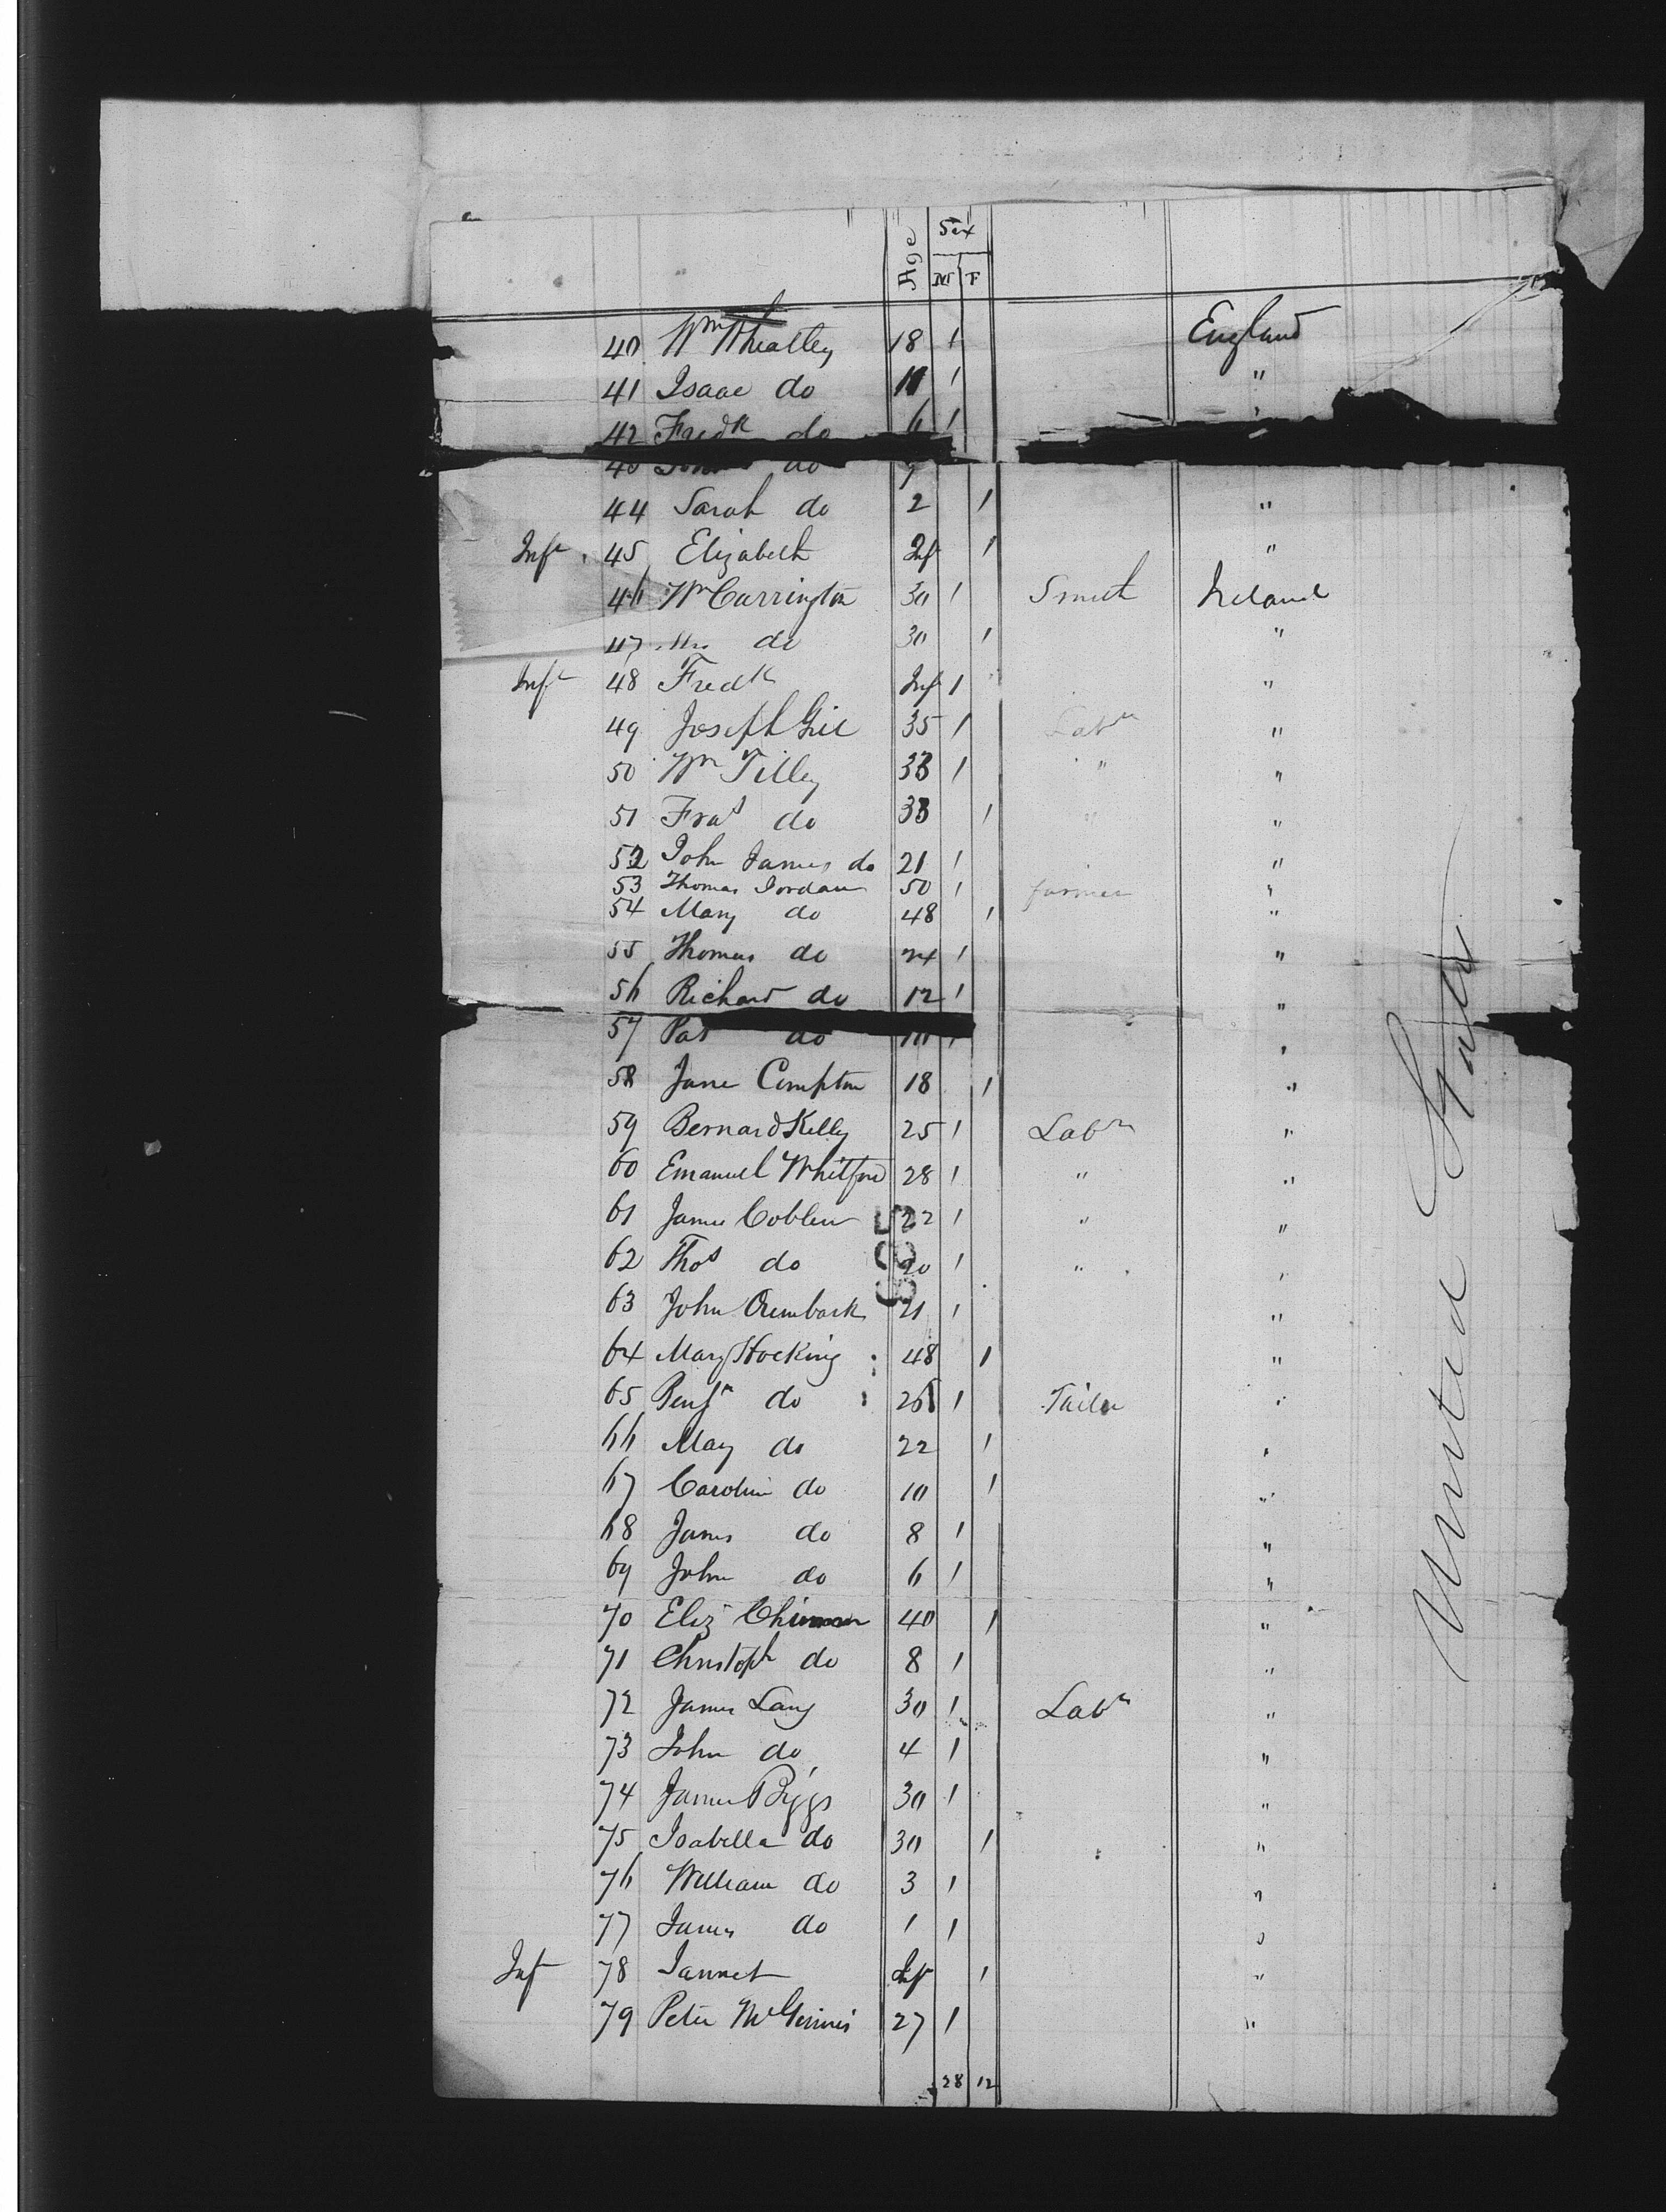 Age Sex
M F
40 Wm Wheatley 18 1 England
41 Isaac do 11 1 "
42 Fredk do 6 1 "
43 do
44 Sarah do 2 1 "
Inft 45 Elizabeth Inf 1 "
46 Wm Carrington 30 1 Smith Ireland
47 Mrs do 30 1 "
Inft 48 Fredk Inf 1 "
49 Joseph 35 1 Labr "
50 Wm Tilley 33 1 " "
51 Fras do 33 1 " "
52 John James do 21 1 "
53 Thomas Jordan 50 1 farmer "
54 Mary do 48 1 "
55 Thomas do 24 1 "
56 Richard do 12 1 "
57 Pat do 10 1 "
58 Jane Compton 18 1 "
59 Bernard Kelly 25 1 Labr "
60 Emanuel Whitford 28 1 " "
61 James Coblen 22 1 " "
62 Thos do 20 1 " "
63 John 21 1 "
64 Mary Hocking 48 1 "
65 Benjn do 26 1 Tailor "
66 Mary do 22 1 "
67 Caroline do 10 1 "
68 James do 8 1 "
69 John do 6 1 "
70 Eliz 40 1 "
71 Christoph do 8 1 "
72 James Lang 30 1 Labr "
73 John do 4 1 "
74 James Biggs 30 1 "
75 Isabella do 30 1 "
76 William do 3 1 "
77 James do 1 1 "
Inf 78 Jannet Inf 1 "
79 Peter McGinnis 27 1 "
28 12
United States